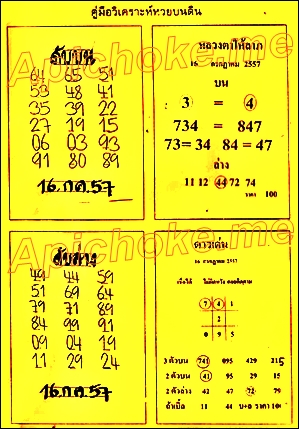 คู่มือวิเคราะห์หวยบนดิน
Apichoke.me
ลับบน
64 65 51
53 48 41
35 39 22
27 19 15
06 03 93
91 80 89
16.กค.57
หลวงตาให้ลาภ
16 กรกฎาคม 2557
บน
3 = 4
734 = 847
73= 34 84 = 47
ล่าง
11 12 44 72 74
ราคา 100
Apichoke.me
ลับล่าง
49 44 59
51 69 64
79 71 89
84 99 91
09 04 19
11 29 24
16.กค.57
ดาวเด่น
16 กรกฎาคม 2557
7 4 1
2
0 9 5
3 ตัวบน 741 095 429 215
2 ตัวบน 41 95 29 15
2 ตัวล่าง 42 47 72 79
ถ้าเบิ้ล 11 44 บน+ล ราคา 100